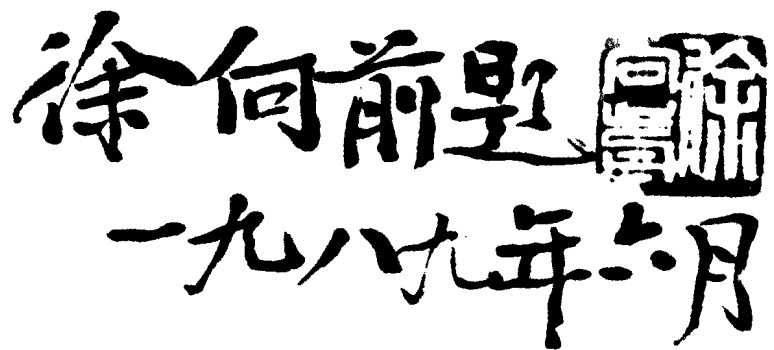 徐向前题 徐向前
一九八九年六月